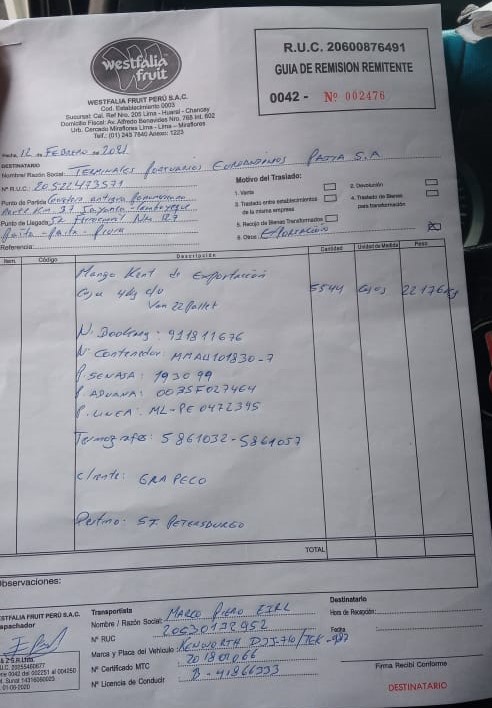 westfalia
fruit
WESTFALIA FRUIT PERÚ S.A.C.
Cod. Establecimiento 0003
Sucursal: Cal. Ref Nro. 205 Lima - Huaral - Chancay
Domicilio Fiscal: Av. Alfredo Benavides Nro. 768 Int. 802
Urb. Cercado Miraflores Lima - Lima - Miraflores
Telf.: (01) 243 7640 Anexo: 1223
R.U.C. 20600876491
GUIA DE REMISION REMITENTE
0042 - Nº 002476
Fecha, 12 de FEBRERO de 2021
DESTINATARIO
Nombre/ Razón Social: TERMINALES PORTUARIOS EUROANDINOS PAITA S.A
Nº R.U.C. 20522473571
Punto de Partida Carretera antigua Panamericana
Norte Km 37
Punto de Llegada
Paita - Paita - Piura
Referencia:
Motivo del Traslado:
1. Venta
2. Devolución
3. Traslado entre establecimientos de la misma empresa
4. Traslado de Bienes para transformación
5. Recojo de Bienes Transformados
6. Otros EXPORTACIÓN
Item. Código Descripción Cantidad Unidad de Medida Peso
Mango Kent de Exportación
Caja 4kg c/u 5544 Cajas 22176Kg
Van 22 Pallet
N. Booking: 911811676
Nº Contenedor: MMAU101830-7
P SENASA: 193099
P ADUANA: 0035F027464
P. LINEA: ML-PE 0472395
Termografos: 5861032-5861057
Cliente: GRAPECO
Destino: ST. PETERSBURGO
TOTAL
Observaciones:
WESTFALIA FRUIT PERÚ S.A.C.
Despachador
Transportista
Nombre / Razón Social: MARCO PIERO EIRL
Nº RUC
Marca y Placa del Vehículo: KENWORTH
Nº Certificado MTC
Nº Licencia de Conducir B-41866333
Destinatario
Hora de Recepción:
Fecha
Firma Recibí Conforme
DESTINATARIO